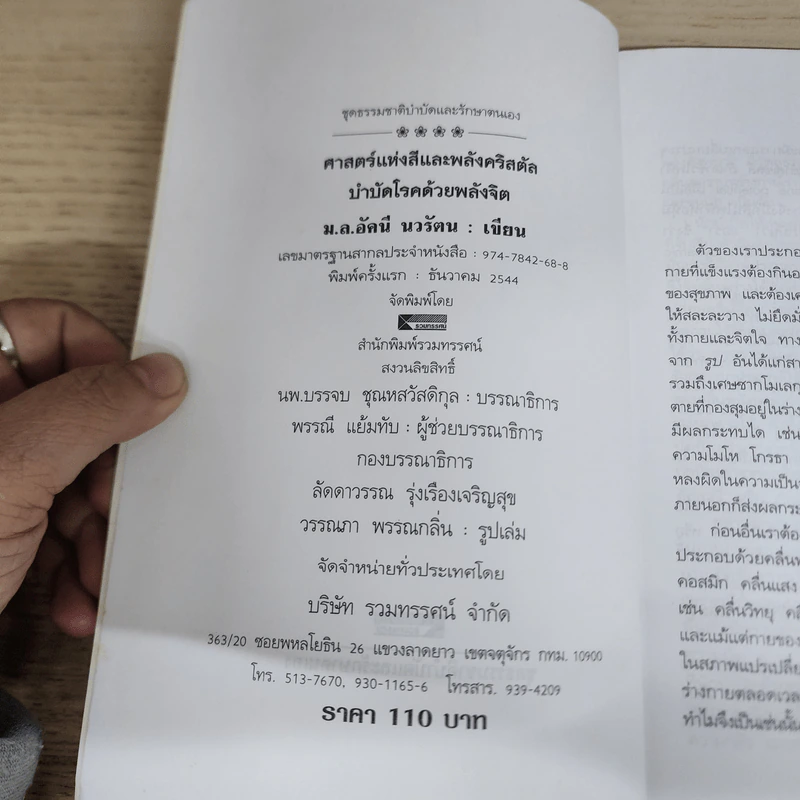 ชุดธรรมชาติบำบัดและรักษาตนเอง
ศาสตร์แห่งสีและพลังคริสตัล
บำบัดโรคด้วยพลังจิต
ม.ล.อัคนี นวรัตน : เขียน
เลขมาตรฐานสากลประจำหนังสือ : 974-7842-68-8
พิมพ์ครั้งแรก : ธันวาคม 2544
จัดพิมพ์โดย
รวมทรรศน์
สำนักพิมพ์รวมทรรศน์
สงวนลิขสิทธิ์
นพ.บรรจบ ชุณหสวัสดิกุล : บรรณาธิการ
พรรณี แย้มทับ : ผู้ช่วยบรรณาธิการ
กองบรรณาธิการ
ลัดดาวรรณ รุ่งเรืองเจริญสุข
วรรณภา พรรณกลิ่น : รูปเล่ม
จัดจำหน่ายทั่วประเทศโดย
บริษัท รวมทรรศน์ จำกัด
363/20 ซอยพหลโยธิน 26 แขวงลาดยาว เขตจตุจักร กทม. 10900
โทร. 513-7670, 930-1165-6 โทรสาร. 939-4209
ราคา 110 บาท
ตัวของเราประกอ
กายที่แข็งแรงต้องกินอ
ของสุขภาพ และต้องเค
ให้สละละวาง ไม่ยึดมั่
ทั้งกายและจิตใจ ทาง
จาก รูป อันได้แก่สา
รวมถึงเศษซากโมเลกุ
ตายที่กองสุมอยู่ในร่าง
มีผลกระทบได เช่น
ความโมโห โกรธา
หลงผิดในความเป็น
ภายนอกก็ส่งผลกระ
ก่อนอื่นเราต้อ
ประกอบด้วยคลื่นพ
คอสมิก คลื่นแสง
เช่น คลื่นวิทยุ คลื
และแม้แต่กายของ
ในสภาพแปรเปลี่ย
ร่างกายตลอดเวล
ทำไมจึงเป็นเช่นนั้น